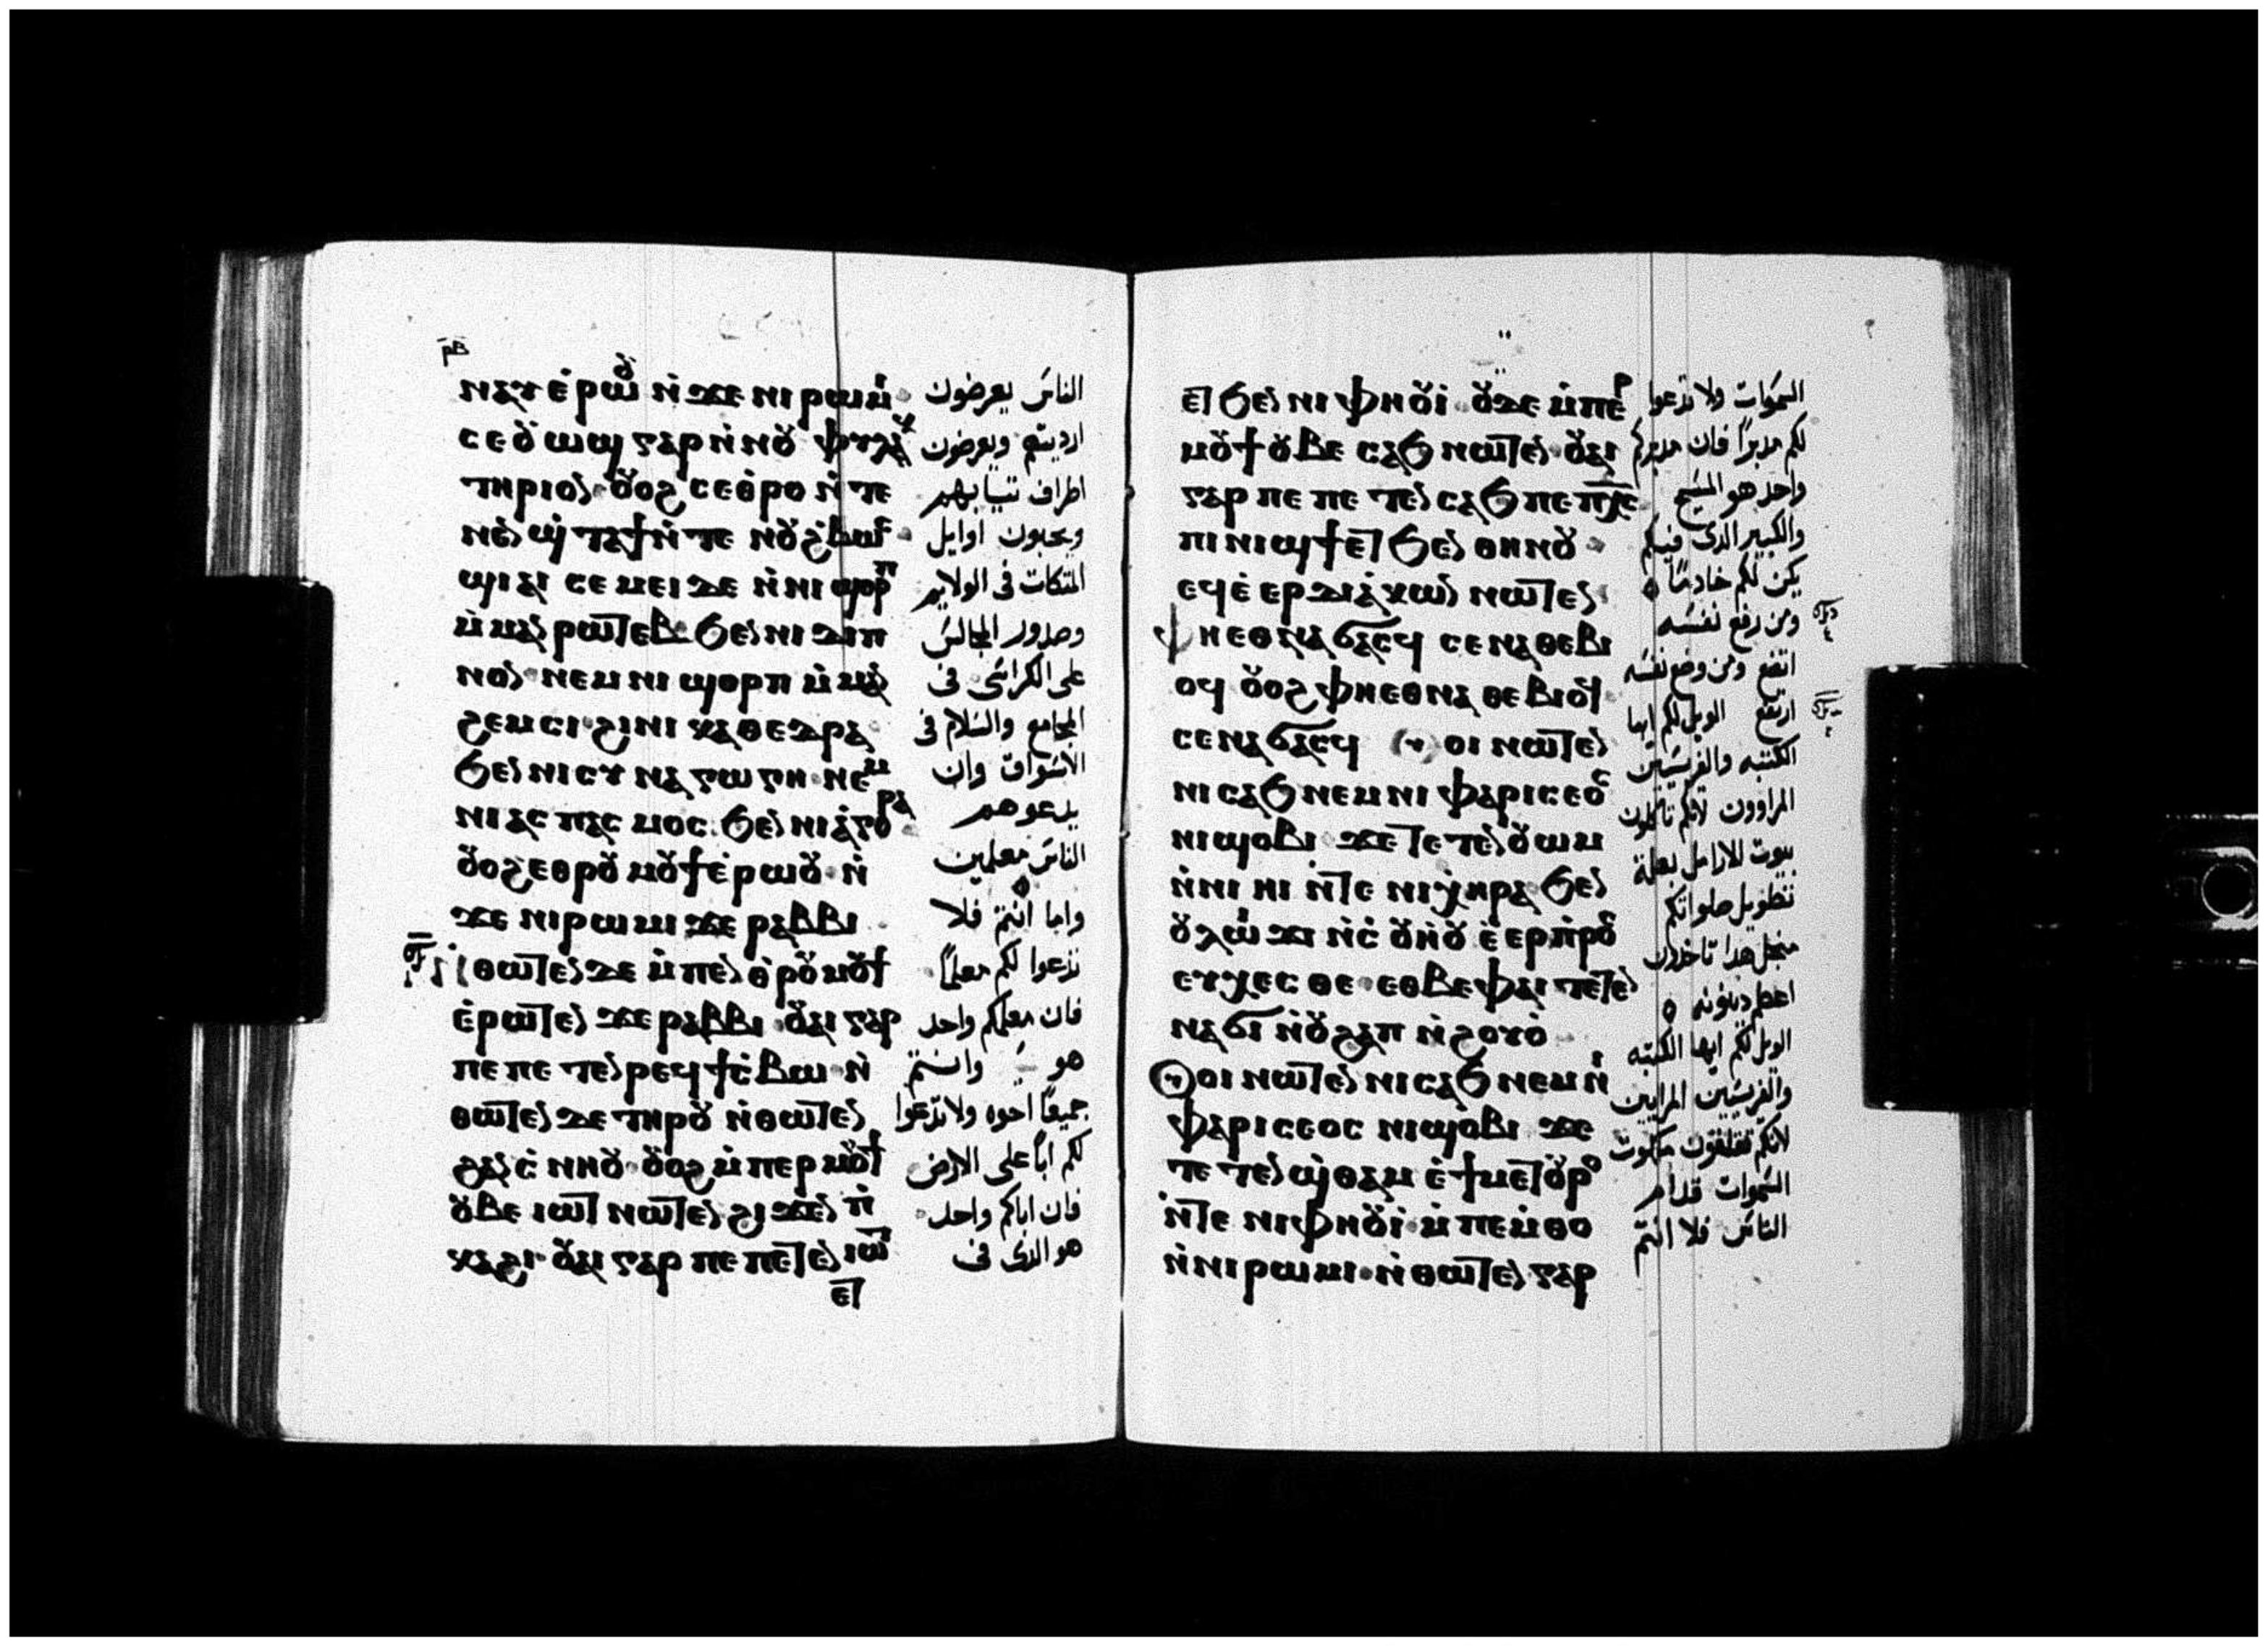 ⲣⲃ
ⲛⲁⲩ ⲉ̀ⲣⲱⲟⲩ ⲛ̀ϫⲉ ⲛⲓⲣⲱⲙⲓ
ⲥⲉⲟⲩⲱϣⲥ ⲅⲁⲣ ⲛ̀ⲛⲟⲩ ⲫⲩⲗⲁⲕ
ⲧⲏⲣⲓⲟⲛ ⲟⲩⲟϩ ⲥⲉⲑ̀ⲣⲟ ⲛ̀ⲧⲉ
ⲛⲉⲛϣ̀ⲧⲁϯ ⲛ̀ⲧⲉ ⲛⲟⲩϩ̀ⲃⲱⲥ
ϣⲓⲁⲓ ⲥⲉⲙⲉⲓ ⲇⲉ ⲛ̀ⲛⲓϣⲟⲣⲡ
ⲙ̀ⲙⲁⲛⲣⲱⲧⲉⲃ ϧⲉⲛ ⲛⲓⲇⲓⲡ
ⲛⲟⲛ ⲛⲉⲙ ⲛⲓϣⲟⲣⲡ ⲙ̀ⲙⲁⲛ
ϩⲉⲙⲥⲓ ϩⲓ ⲛⲓⲕⲁⲑⲉⲇⲣⲁ
ϧⲉⲛ ⲛⲓⲥⲩⲛⲁⲅⲱⲅⲏ ⲛⲉⲙ
ⲛⲓⲁⲥⲡⲁⲥⲙⲟⲥ ϧⲉⲛ ⲛⲓⲁ̀ⲅⲟⲣⲁ
ⲟⲩⲟϩ ⲉⲑⲣⲟⲩⲙⲟⲩϯ ⲉ̀ⲣⲱⲟⲩ ⲛ̀
ϫⲉ ⲛⲓⲣⲱⲙⲓ ϫⲉ ⲣⲁⲃⲃⲓ
ⲛ̀ⲑⲱⲧⲉⲛ ⲇⲉ ⲙ̀ⲡⲉⲛⲑ̀ⲣⲟⲩⲙⲟⲩϯ
ⲉ̀ⲣⲱⲧⲉⲛ ϫⲉ ⲣⲁⲃⲃⲓ ⲟⲩⲁⲓ ⲅⲁⲣ
ⲡⲉ ⲡⲉⲧⲉⲛⲣⲉϥϯⲥ̀ⲃⲱ ⲛ̀
ⲑⲱⲧⲉⲛ ⲇⲉ ⲧⲏⲣⲟⲩ ⲛ̀ⲑⲱⲧⲉⲛ
ϩⲁⲛⲥ̀ⲛⲏⲟⲩ ⲟⲩⲟϩ ⲙ̀ⲡⲉⲣⲙⲟⲩϯ
ⲟⲩⲃⲉ ⲓⲱⲧ ⲛⲱⲧⲉⲛ ϩⲓϫⲉⲛ ⲡ̀
ⲕⲁϩⲓ ⲟⲩⲁⲓ ⲅⲁⲣ ⲡⲉ ⲡⲉⲧⲉⲛⲓⲱⲧ
ⲉⲧ
الناس يعرضون
ارديتهم ويعرضون
اطراف ثيابهم
ويحبون اوايل
المتكات فى الولايم
وصدور المجالس
على الكراسى فى
المجامع والسلام فى
الأسواق وان
يدعوهم
الناس معلمين
واما انتم فلا
تدعوا لكم معلماً
فان معلمكم واحد
هو وانتم
جميعاً اخوه ولا تدعوا
لكم اباً على الارض
فان اباكم واحد
هو الذى فى
ⲉⲧϧⲉⲛ ⲛⲓⲫⲏⲟⲩⲓ̀ ⲟⲩⲇⲉ ⲙ̀ⲡⲉⲣ
ⲙⲟⲩϯ ⲟⲩⲃⲉ ⲥⲁϧ ⲛⲱⲧⲉⲛ ⲟⲩⲁⲓ
ⲅⲁⲣ ⲡⲉ ⲡⲉⲧⲉⲛⲥⲁϧ ⲡⲉ ⲡⲭⲥ
ⲡⲓⲛⲓϣϯ ⲉⲧϧⲉⲛ ⲑⲏⲛⲟⲩ
ⲉϥⲉ̀ⲉⲣⲇⲓⲁ̀ⲕⲱⲛ ⲛⲱⲧⲉⲛ
ⲫⲏⲉⲑⲛⲁϭⲁⲥϥ ⲥⲉⲛⲁⲑⲉⲃⲓ
ⲟϥ ⲟⲩⲟϩ ⲫⲏⲉⲑⲛⲁⲑⲉⲃⲓⲟϥ
ⲥⲉⲛⲁϭⲁⲥϥ ⲟⲩⲟⲓ ⲛⲱⲧⲉⲛ
ⲛⲓⲥⲁϧ ⲛⲉⲙ ⲛⲓⲫⲁⲣⲓⲥⲉⲟⲥ
ⲛⲓϣⲟⲃⲓ ϫⲉ ⲧⲉⲧⲉⲛⲟⲩⲱⲙ
ⲛ̀ⲛⲓⲏⲓ ⲛ̀ⲧⲉ ⲛⲓⲭⲏⲣⲁ ϧⲉⲛ
ⲟⲩⲗⲱⲓϫⲓ ⲛ̀ⲥ̀ ⲟⲩⲏ̀ⲟⲩ ⲉ̀ⲉⲣⲡ̀ⲣⲟⲥ
ⲉⲩⲭⲉⲥⲑⲉ ⲉⲑⲃⲉⲫⲁⲓ ⲧⲉⲧⲉⲛ
ⲛⲁϭⲓ ⲛ̀ⲟⲩϩⲁⲡ ⲛ̀ϩⲟⲩⲟ̀
ⲟⲩⲟⲓ ⲛⲱⲧⲉⲛ ⲛⲓⲥⲁϧ ⲛⲉⲙ ⲛⲓ
ⲫⲁⲣⲓⲥⲉⲟⲥ ⲛⲓϣⲟⲃⲓ ϫⲉ
ⲧⲉⲧⲉⲛϣ̀ⲑⲁⲙ ⲉ̀ϯⲙⲉⲧⲟⲩⲣⲟ
ⲛ̀ⲧⲉ ⲛⲓⲫⲏⲟⲩⲓ̀ ⲙ̀ⲡⲉⲙ̀ⲑⲟ
ⲛ̀ⲛⲓⲣⲱⲙⲓ ⲛ̀ⲑⲱⲧⲉⲛ ⲅⲁⲣ
السموات ولا تدعوا
لكم مدبراً فان مدبركم
واحد هو المسيح
والكبير الذى فيكم
يكن لكم خادماً
ومن رفع نفسه
اتضع ومن وضع نفسه
ارتفع الويل لكم ايها
الكتبه والفريسيين
المراوون لانكم تاكلون
بيوت الارامل بعلة
تطويل صلواتكم
من اجل هذا تاخذون
اعظم دينونه
الويل لكم ايها الكتبه
والفريسيين المرايين
لانكم تغلقون ملكوت
السموات قدام
الناس فلا انتم